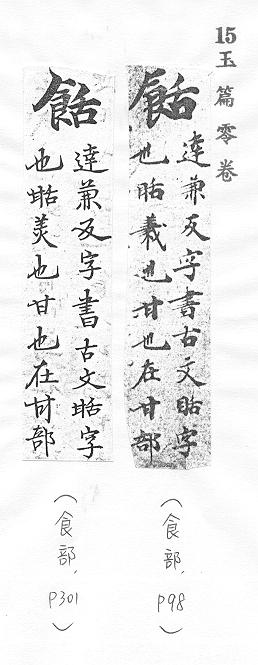 15玉篇零卷
餂
達兼反字書古文甛字
也甛義也甘也在甘部
(食部, P98)
餂
達兼反字書古文甛字
也甛美也甘也在甘部
(食部, P301)